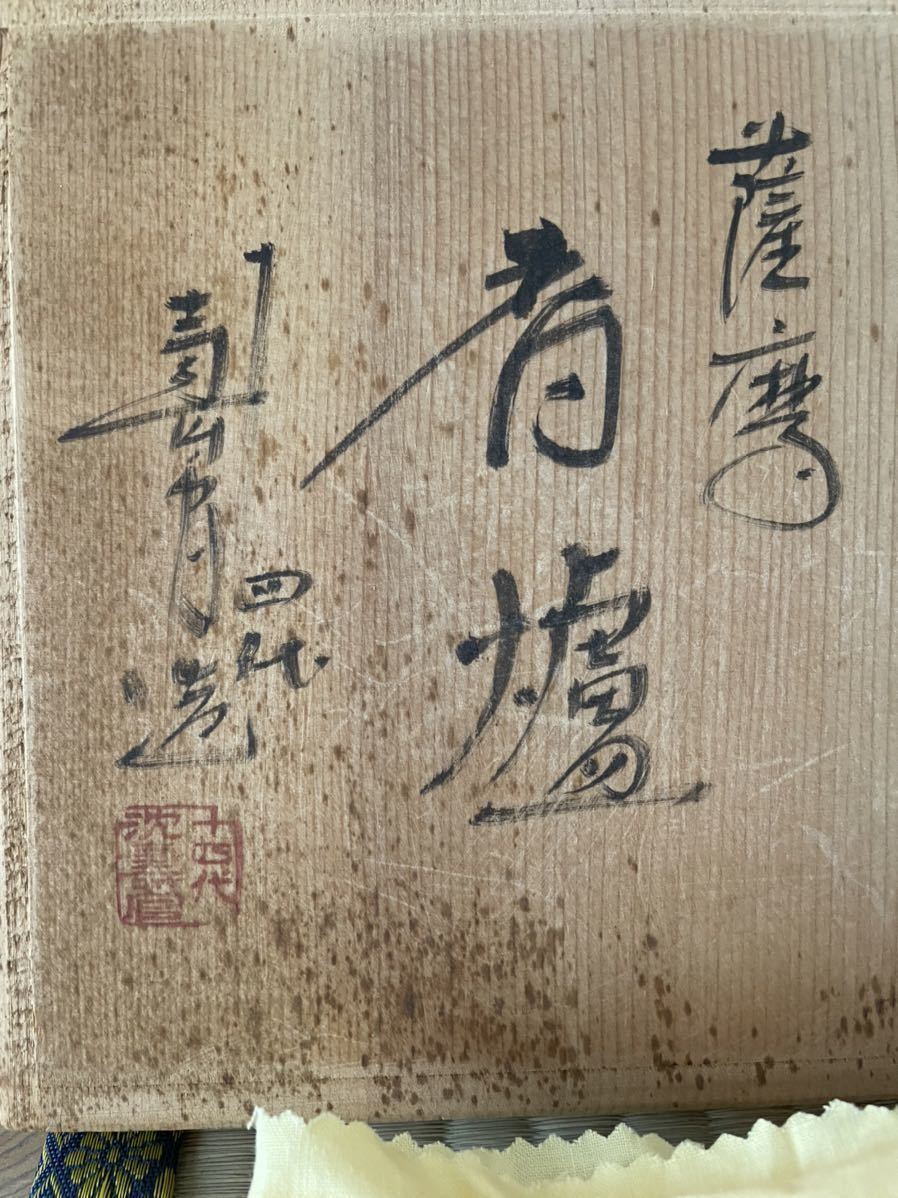 薩摩
香爐
四代
壽官造
十四代
沈壽官